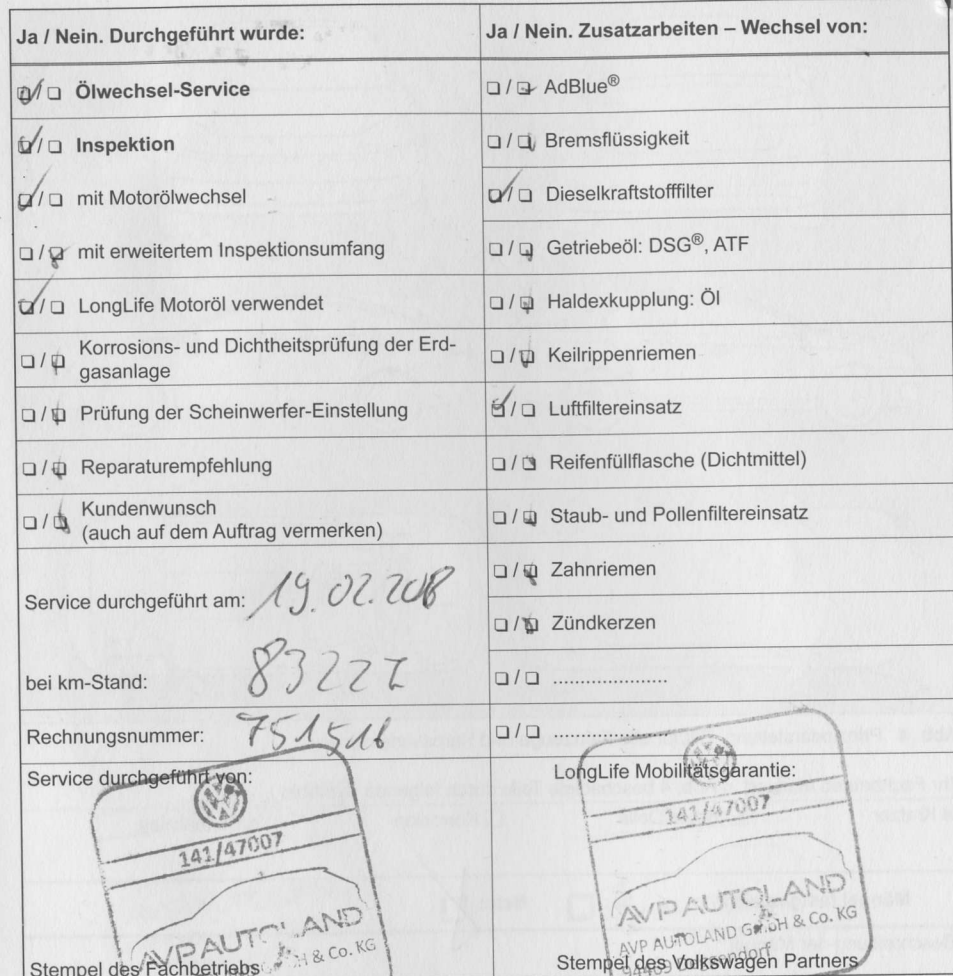 Ja / Nein. Durchgeführt wurde:
Ölwechsel-Service
Inspektion
mit Motorölwechsel
mit erweitertem Inspektionsumfang
LongLife Motoröl verwendet
Korrosions- und Dichtheitsprüfung der Erd-
gasanlage
Prüfung der Scheinwerfer-Einstellung
Reparaturempfehlung
Kundenwunsch
(auch auf dem Auftrag vermerken)
Service durchgeführt am: 19.02.2018
bei km-Stand:
Rechnungsnummer: 751516
Service durchgeführt von:
141/47007
AVP AUTOLAND
& Co. KG
Stempel des Fachbetriebs
Ja / Nein. Zusatzarbeiten – Wechsel von:
AdBlue®
Bremsflüssigkeit
Dieselkraftstofffilter
Getriebeöl: DSG®, ATF
Haldexkupplung: Öl
Keilrippenriemen
Luftfiltereinsatz
Reifenfüllflasche (Dichtmittel)
Staub- und Pollenfiltereinsatz
Zahnriemen
Zündkerzen
LongLife Mobilitätsgarantie:
141/47007
AVP AUTOLAND
AVP AUTOLAND GmbH & Co. KG
94469
Stempel des Volkswagen Partners